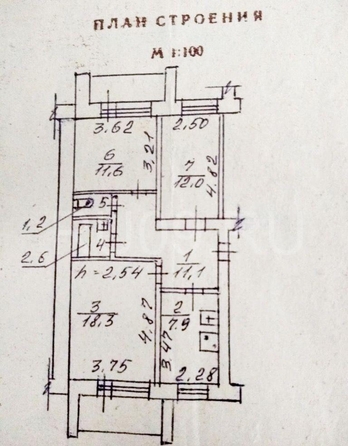 ПЛАН СТРОЕНИЯ
М 1:100
3.62
2,50
6
11,6
3,21
7
12.0
4.82
1,2
5
2.6
4
h = 2,54
1
11,1
3
18,3
4.87
2
7.9
3.47
3.75
2,28